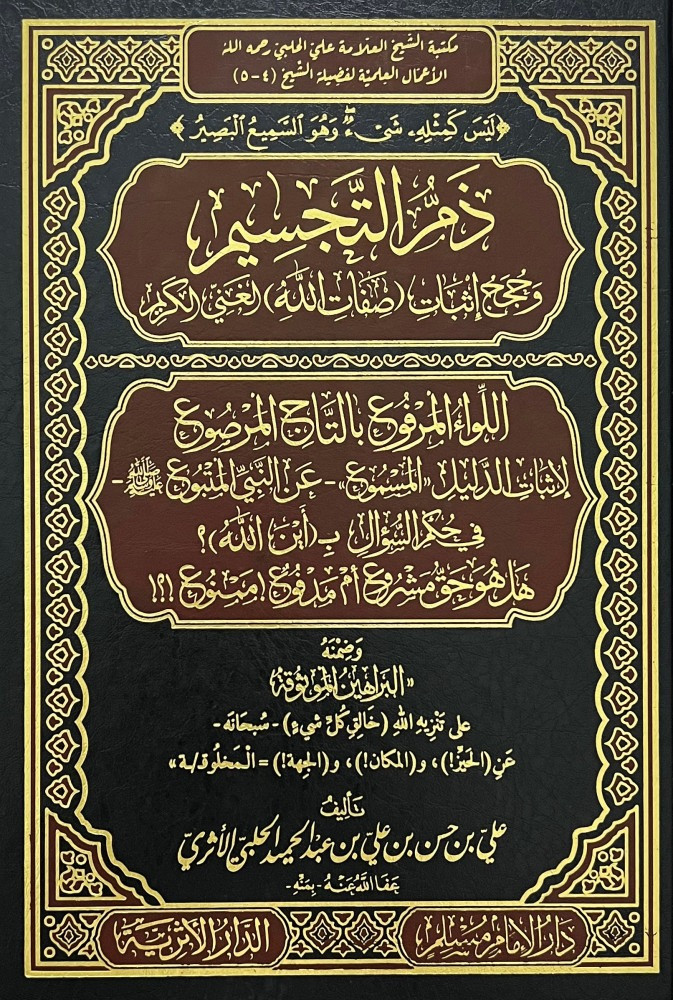 مكتبة الشيخ العلامة علي الحلبي رحمه الله
الأعمال العلمية لفضيلة الشيخ (٤-٥)
﴿لَيْسَ كَمِثْلِهِۦ شَىْءٌ ۖ وَهُوَ السَّمِيعُ الْبَصِيرُ﴾
ذَمُّ التَّجْسِيمِ
وَحُجَجُ إِثْبَاتِ (صِفَاتِ اللَّهِ) الغَنِيِّ الكَرِيمِ
اللِّوَاءُ المَرْفُوع بالتَّاجِ المَرْصُوع
لإثباتِ الدَّلِيلِ «المَسْمُوع» - عَنِ النَّبِيِّ المَتْبُوع ﷺ -
في حُكْمِ السُّؤَالِ بـ (أَيْنَ اللَّهُ)؟
هَل هُوَ حَقٌّ مَشْرُوع أَمْ مَدْفُوعٌ! مَمْنُوع !؟!
وَضِمْنَهُ
«البَرَاهِينُ المَوْثُوقَةُ
على تَنْزِيهِ اللهِ (خَالِقِ كُلِّ شيءٍ) - سُبحانَه -
عَنِ (الحَيِّزْ!)، و(المكان!)، و(الجِهة!) = الْمَخلُوقـ/ـة»
تأليفُ
عليّ بن حسن بن عليّ بن عبد الحميد الحلبيّ الأثريّ
عَفَا اللَّهُ عَنْهُ - بِمَنِّهِ -
دَارُ الإمَامِ مُسْلِم
الدَّارُ الأَثَرِيَّة